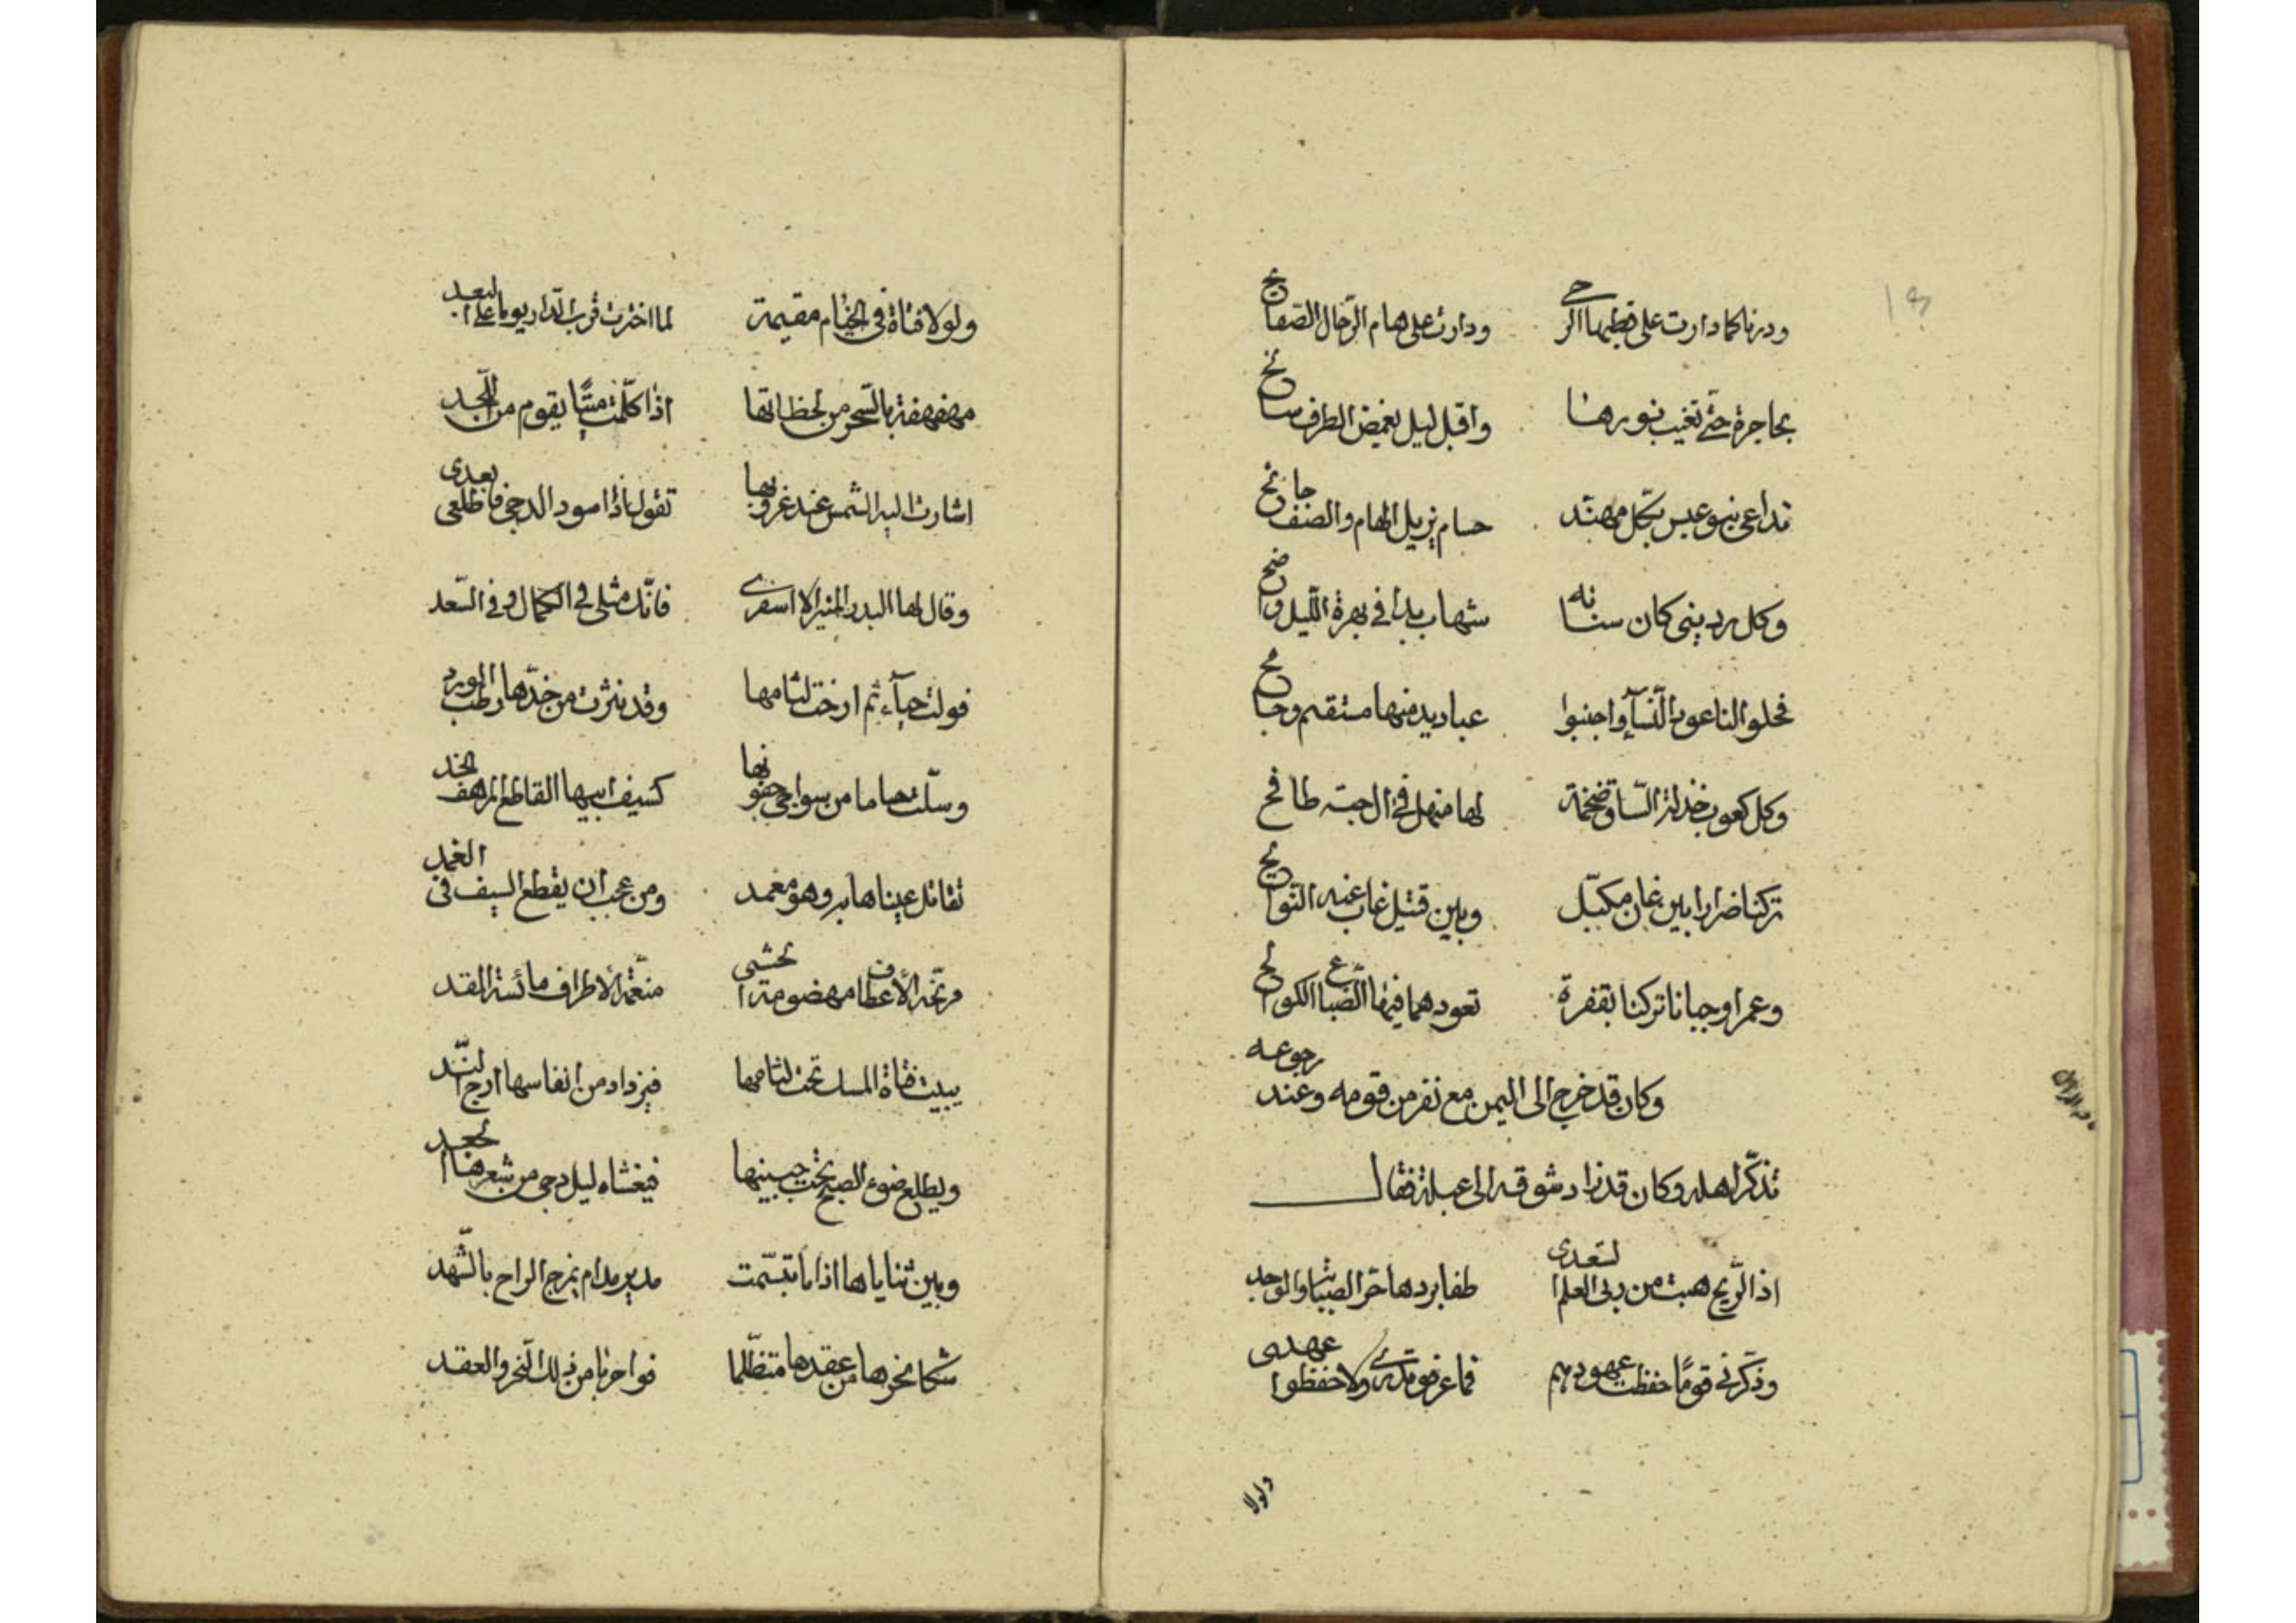 ودرنا كما دارت على قطبها الرحى ودارت على هام الرجال الصفايح
بهاجرة حتى تغيب نورها واقبل ليل يغمض الطرف سائح
تداعى بنو عبس بكل مهند حسام يزيل الهام والصف جانح
وكل رديني كان سنانه شهاب بدا في بهرة الليل واضح
فخلوا لنا عوذ النسآء واجنبوا عباديد منها مستقيم وجامح
وكل كعوب خدلة الساق ضخمة لها منهل في ال طافح
تركنا ضرارا بين عان مكبّل وبين قتيل غاب عنه النوايح
وعمرا وحيانا تركنا بقفرة تعودهما فيها الضباع الكوالح
وكان قد خرج الى اليمن مع نفر من قومه وعند رجوعه
تذكّر اهله وكان قد زاد شوقه الى عبلة فقال
اذ الرّيح هبت من ربى العلم السّعدى طفا بردها حرّ الصبابة والوجد
وذكّرني قومًا حفظت عهودهم فما عرفو قدرى ولا حفظوا عهدى
ولولا
ولولا فتاة في الخيام مقيمة لما اخترت قرب الدّار يوما على البعد
مهفهفة بالسّحر من لحظاتها اذا كلّمت ميتًا يقوم من اللّحد
اشارت اليه الشمس عند غروبها تقول اذا اسود الدجى فاطلعى بعدى
وقال لها البدر المنير الا اسفرى فانّك مثلى في الكمال وفي السّعد
فولت حيآء ثم ارخت لثامها وقد نثرت من خدّها رطب الورد
وسلّت حساما من سواجى جفونها كسيف ابيها القاطع المرهف الحد
تقاتل عيناها به وهو مغمد ومن عجب ان يقطع السيف في الغمد
مرنّحة الأعطاف مهضومة الحشى منعّمة الاطراف مائسة القد
يبيت فتاة المسك تحت لثامها فيزداد من انفاسها ارج النّد
ويطلع ضوء الصبح تحت جبينها فيغشاه ليل دجى من شعرها الجعد
وبين ثناياها اذا ما تبسّمت مدير مدام يمزج الراح بالشّهد
شكا نحرها من عقدها متظلّما فواحربا من ذلك النّحر والعقد